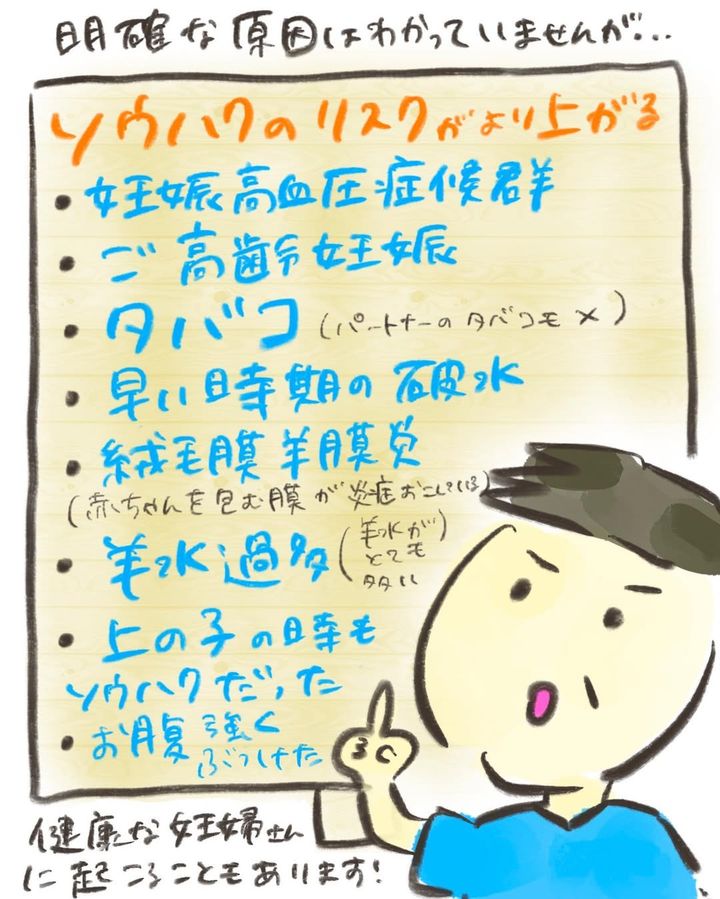 明確な原因はわかっていませんが…
ソウハクのリスクがより上がる
・妊娠高血圧症候群
・ご高齢妊娠
・タバコ(パートナーのタバコも×)
・早い時期の破水
・絨毛膜羊膜炎
(赤ちゃんを包む膜が炎症おこしている)
・羊水過多(羊水が
とても
多い)
・上の子の時も
ソウハクだった
・お腹強く
ぶつけた
健康な妊婦さん
に起こることもあります!